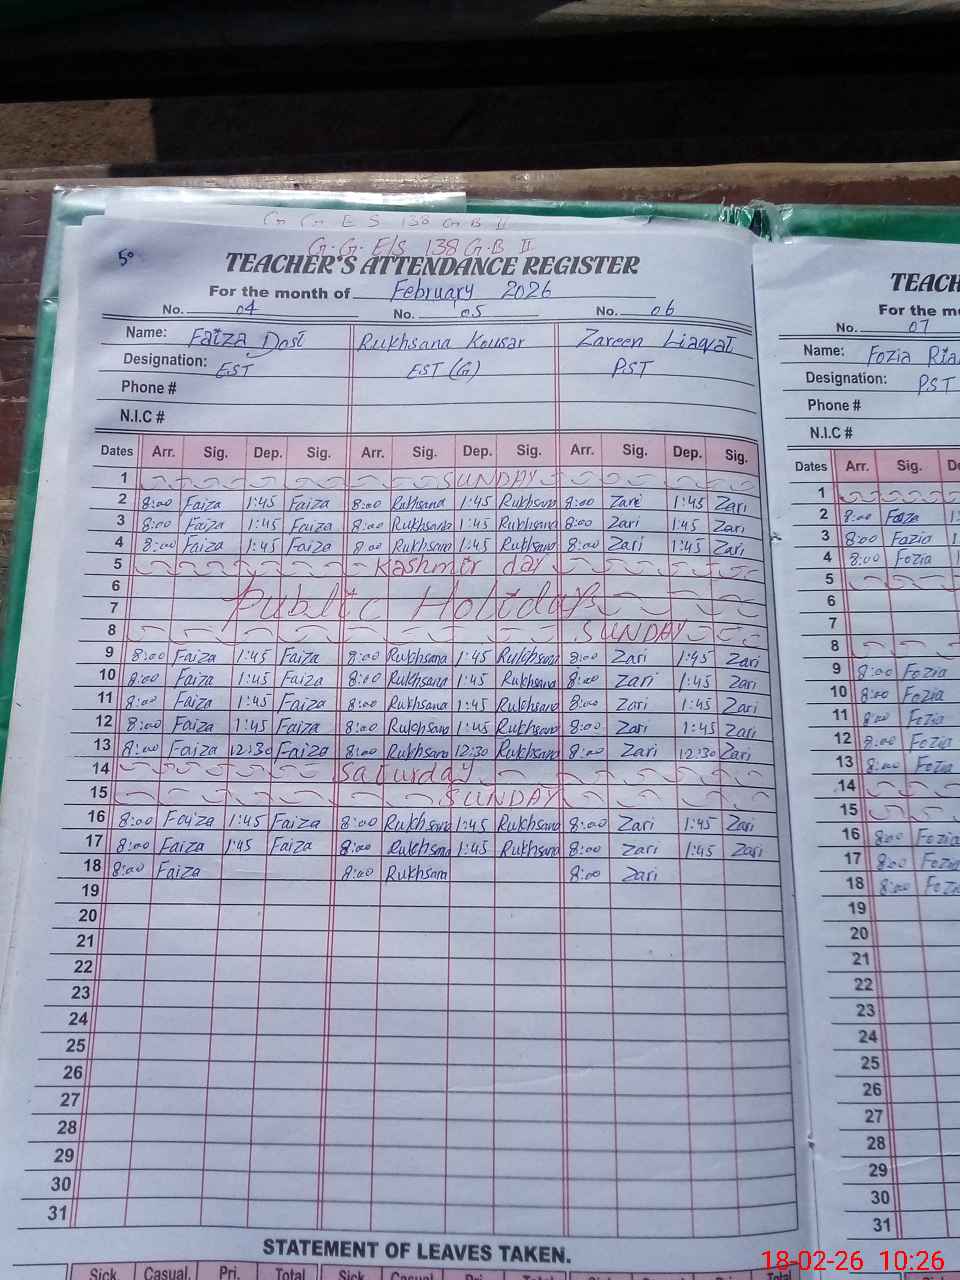 G G E S 138 G B II
5°
G.G.E/S 138 G.B II
TEACHER'S ATTENDANCE REGISTER
For the month of February 2026
No. 04 No. 05 No. 06
Name: Faiza Dost Rukhsana Kousar Zareen Liaqat
Designation: EST EST (G) PST
Phone #
N.I.C #
Dates Arr. Sig. Dep. Sig. Arr. Sig. Dep. Sig. Arr. Sig. Dep. Sig.
1 SUNDAY
2 8:00 Faiza 1:45 Faiza 8:00 Rukhsana 1:45 Rukhsana 8:00 Zari 1:45 Zari
3 8:00 Faiza 1:45 Faiza 8:00 Rukhsana 1:45 Rukhsana 8:00 Zari 1:45 Zari
4 8:00 Faiza 1:45 Faiza 8:00 Rukhsana 1:45 Rukhsana 8:00 Zari 1:45 Zari
5 Kashmir day
6
7 Public Holiday
8 SUNDAY
9 8:00 Faiza 1:45 Faiza 8:00 Rukhsana 1:45 Rukhsana 8:00 Zari 1:45 Zari
10 8:00 Faiza 1:45 Faiza 8:00 Rukhsana 1:45 Rukhsana 8:00 Zari 1:45 Zari
11 8:00 Faiza 1:45 Faiza 8:00 Rukhsana 1:45 Rukhsana 8:00 Zari 1:45 Zari
12 8:00 Faiza 1:45 Faiza 8:00 Rukhsana 1:45 Rukhsana 8:00 Zari 1:45 Zari
13 8:00 Faiza 12:30 Faiza 8:00 Rukhsana 12:30 Rukhsana 8:00 Zari 12:30 Zari
14 Saturday
15 SUNDAY
16 8:00 Faiza 1:45 Faiza 8:00 Rukhsana 1:45 Rukhsana 8:00 Zari 1:45 Zari
17 8:00 Faiza 1:45 Faiza 8:00 Rukhsana 1:45 Rukhsana 8:00 Zari 1:45 Zari
18 8:00 Faiza 8:00 Rukhsana 8:00 Zari
19
20
21
22
23
24
25
26
27
28
29
30
31
STATEMENT OF LEAVES TAKEN.
Sick Casual. Pri. Total Sick Casual Pri. Total
TEACH
For the mo
No. 07
Name: Fozia Ria
Designation: PST
Phone #
N.I.C #
Dates Arr. Sig. De
1
2 8:00 Fozia 1:
3 8:00 Fozia
4 8:00 Fozia
5
6
7
8
9 8:00 Fozia
10 8:00 Fozia
11 8:00 Fozia
12 8:00 Fozia
13 8:00 Fozia
14
15
16 8:00 Fozia
17 8:00 Fozia
18 8:00 Fozia
19
20
21
22
23
24
25
26
27
28
29
30
31
18-02-26 10:26